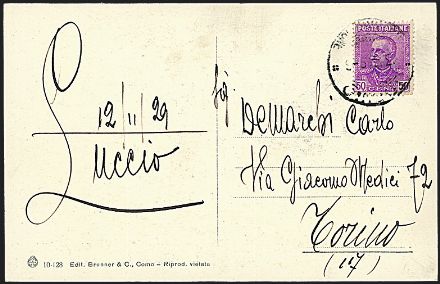 12/11/29
Luccio
POSTE ITALIANE
50 50
CENT.
Sig
DeMarchi Carlo
Via Giacomo Medici 72
Torino
(17)
10-128 Edit. Brunner & C., Como - Riprod. vietata